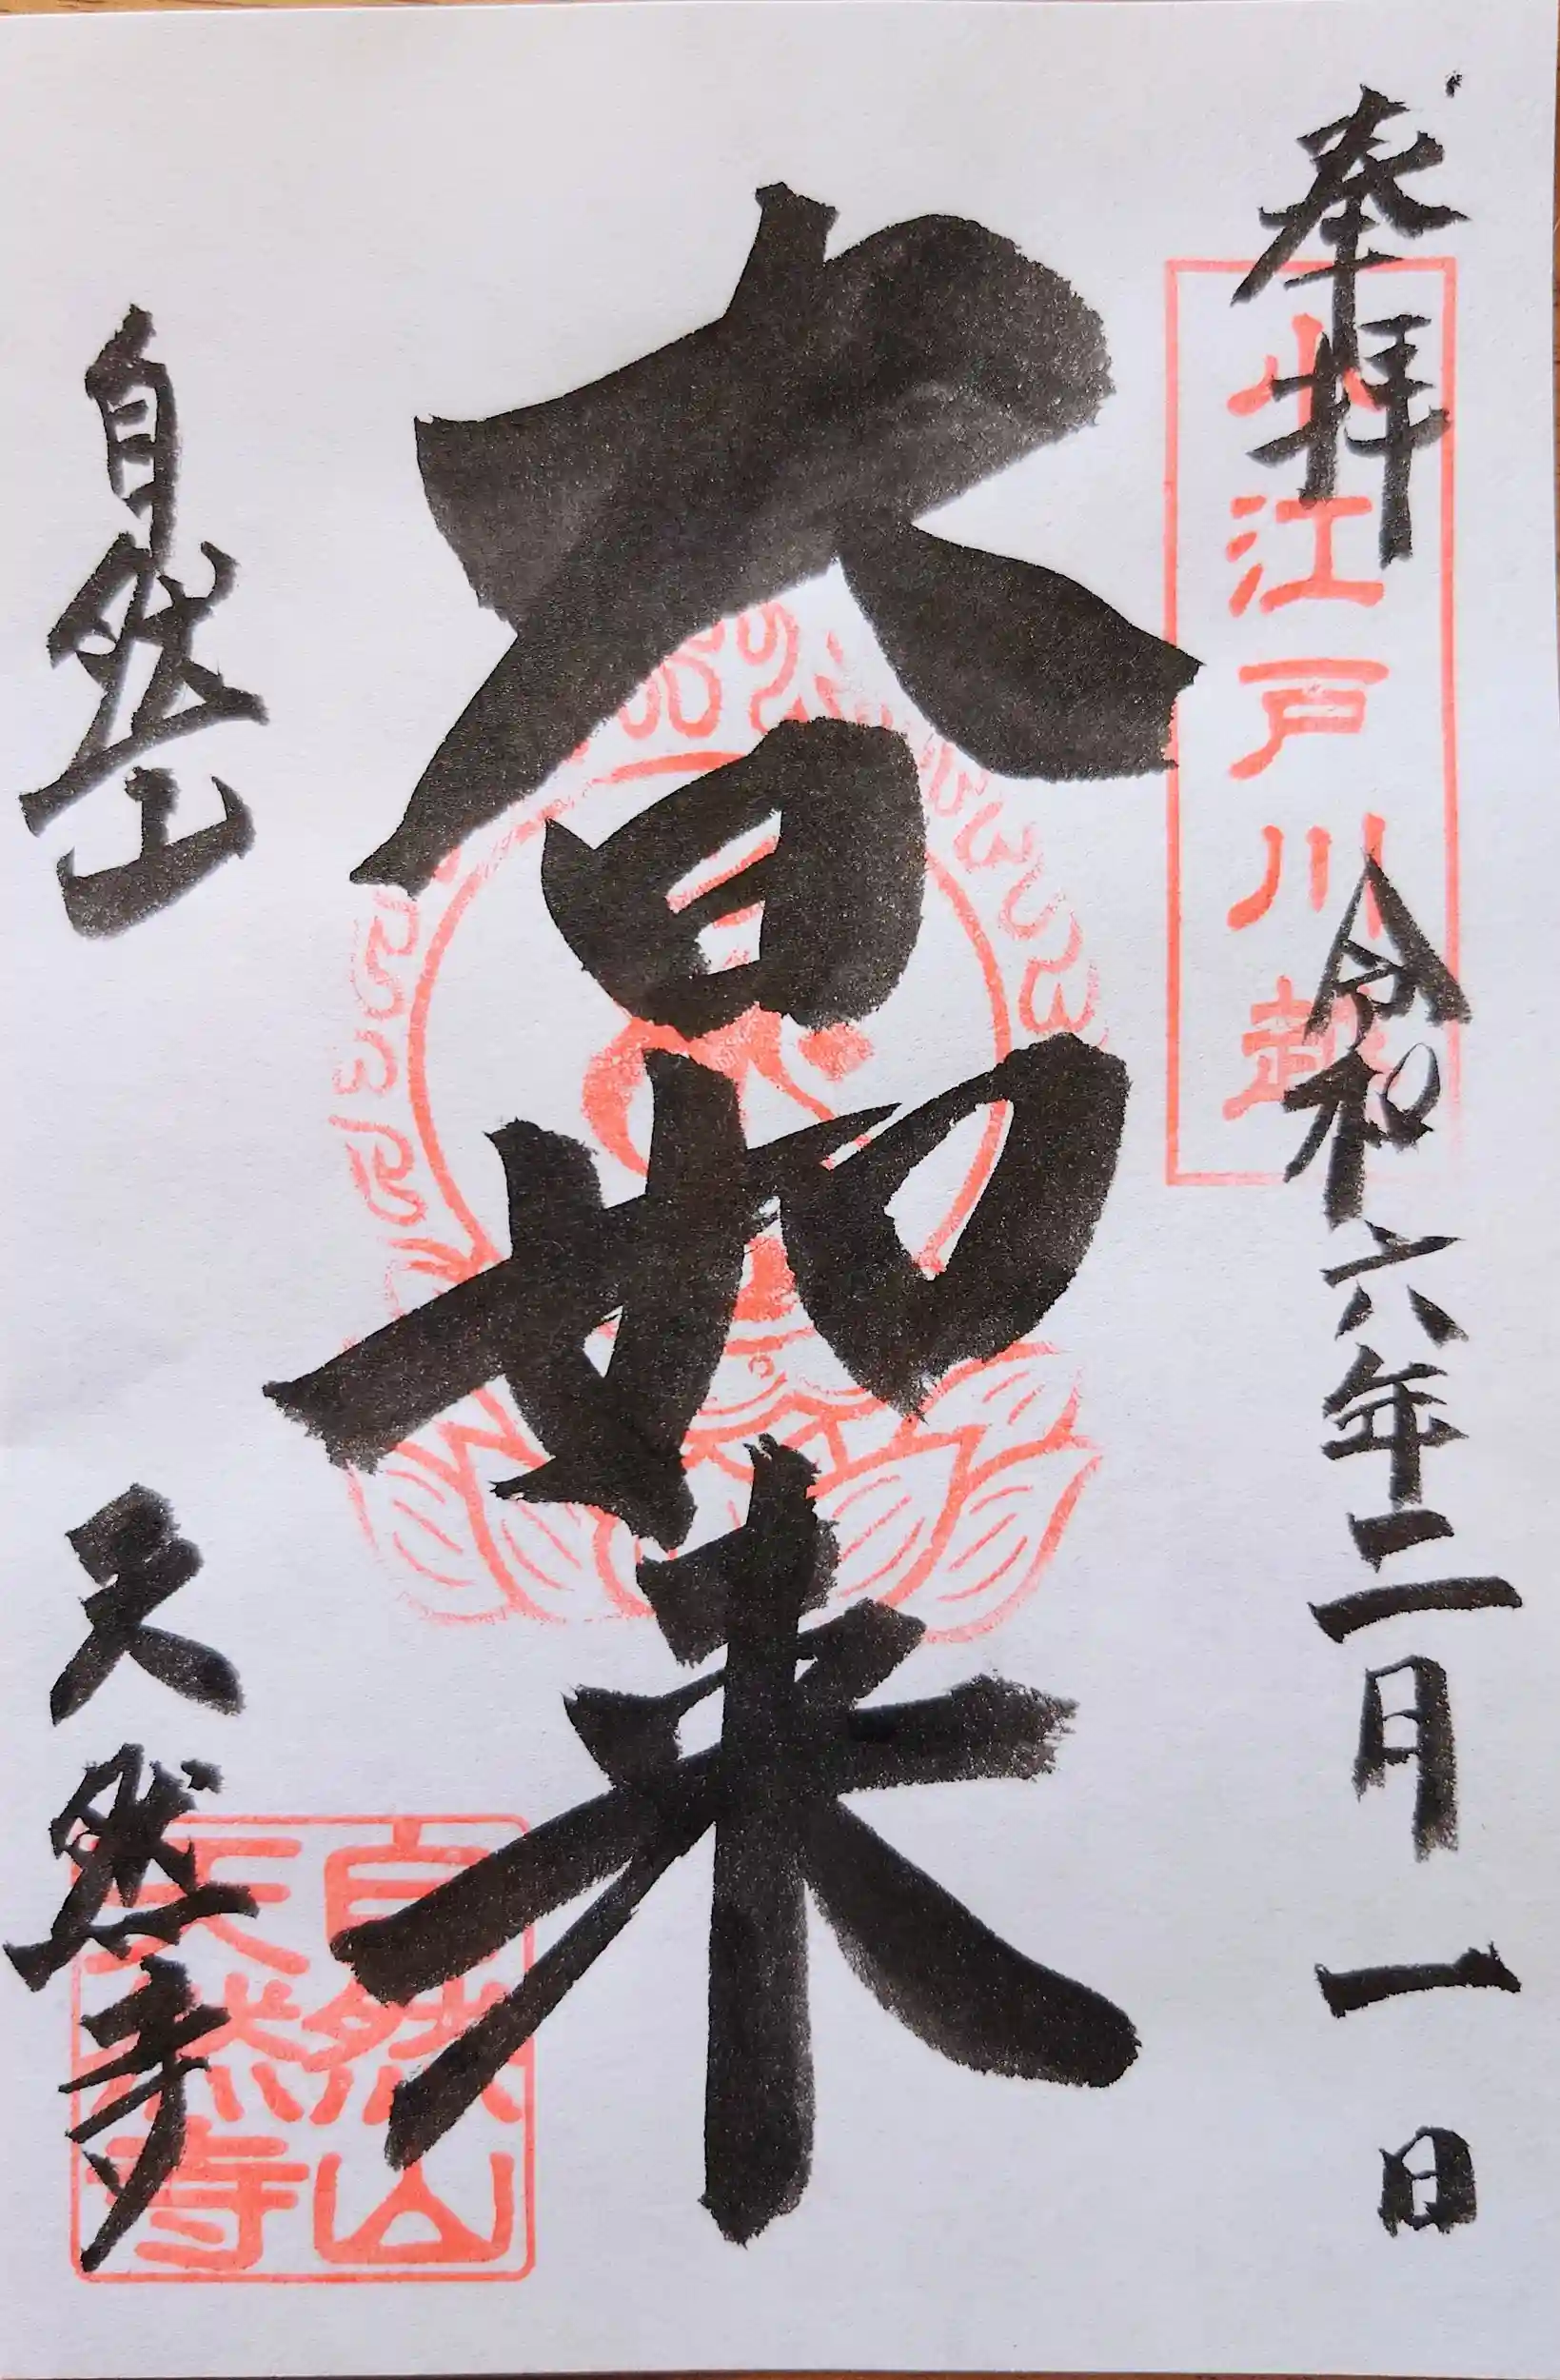 奉拝
小江戸川越
令和六年二月一日
大日如来
自然山
天然寺
自然山
天然寺